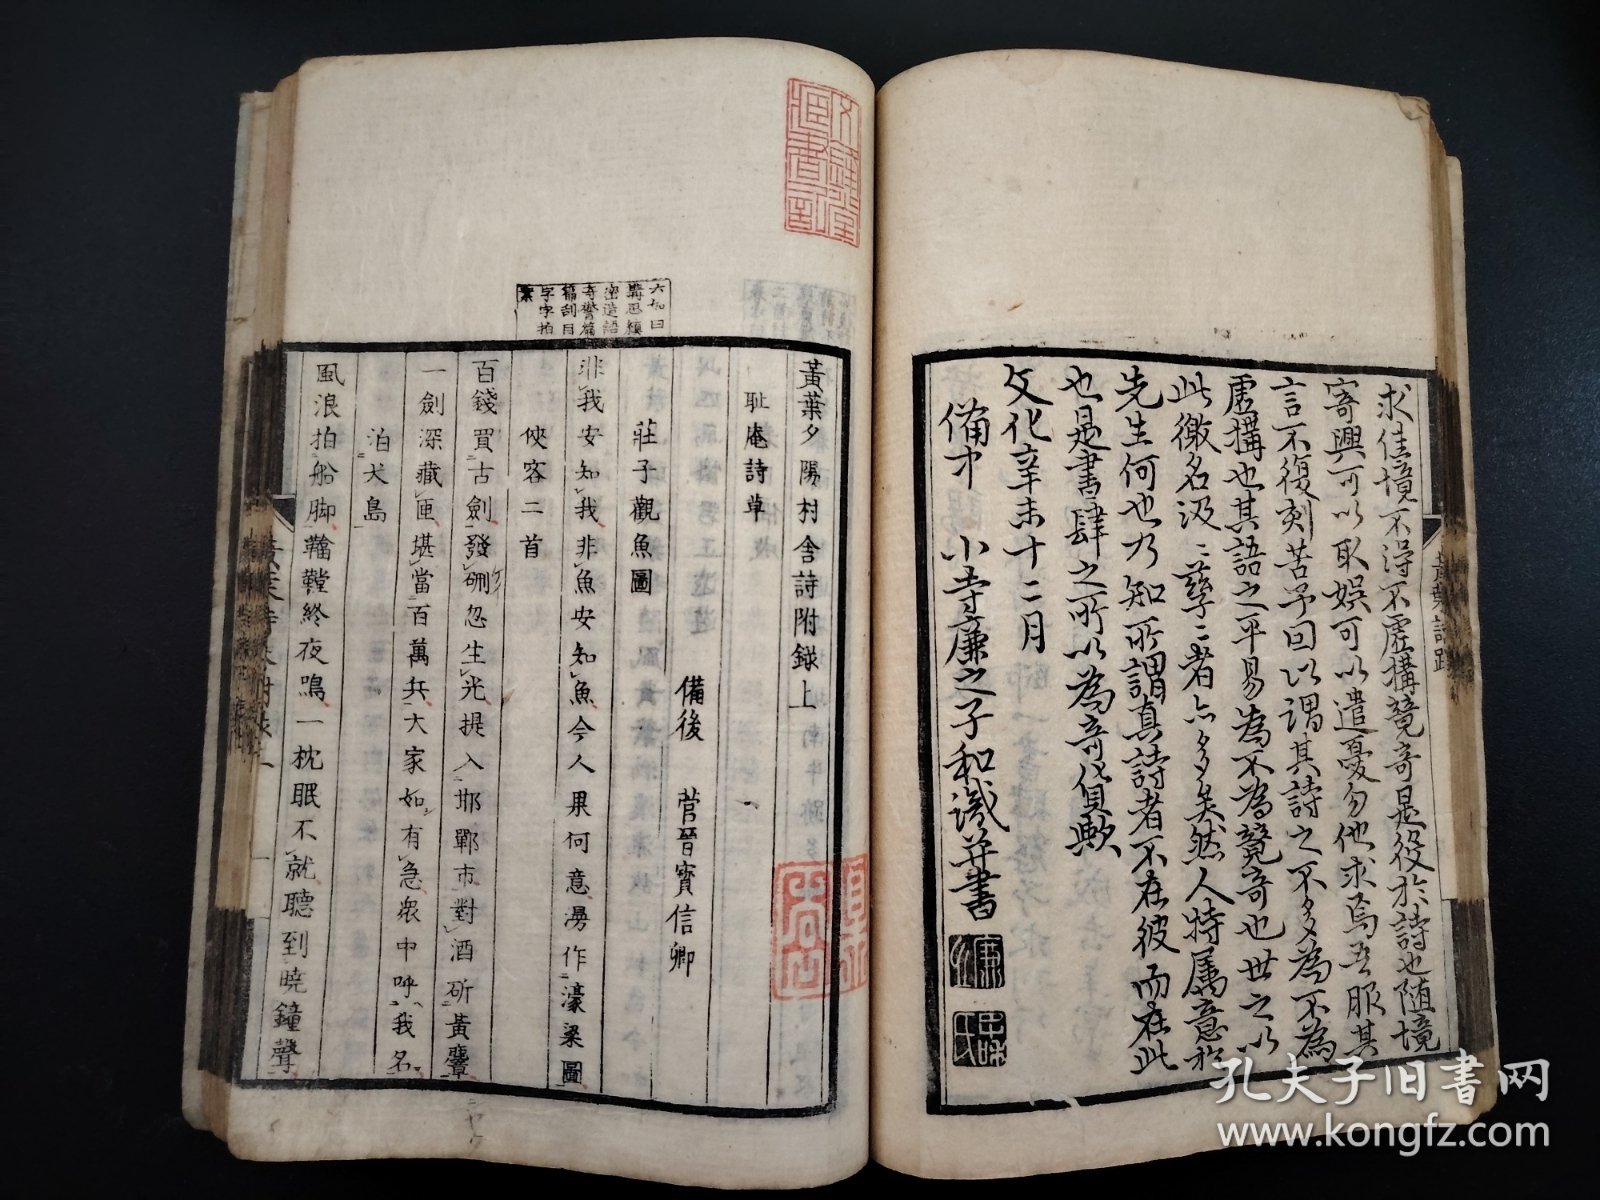 求佳境不得不虛搆競奇是役於詩也随境
寄興可以取娛可以遣憂勿他求焉吾服其
言不復刻苦予回以謂其詩之不多為不為
虛搆也其語之平易為不為競奇也世之以
此徼名汲〻孳〻者亦多矣然人特属意於
先生何也乃知所謂真詩者不在彼而在此
也是書肆之所以為奇貨歟
文化辛未十二月
備中 小寺廉之子和識并書
黃葉詩跋
黃葉夕陽村舍詩附錄上
恥庵詩草
備後 菅晉寶信卿
莊子觀魚圖
非我安知我非魚安知魚今人果何意漫作濠梁圖
俠客二首
百錢買古劍發硎忽生光提入邯鄲市對酒斫黃麞
一劍深藏匣堪當百萬兵大家如有急衆中呼我名
泊犬島
風浪拍船脚鞺鞳終夜鳴一枕眠不就聽到曉鐘聲
六如曰
搆思縝
密造語
奇警篇
篇刮目
字字拍
案
孔夫子旧书网
www.kongfz.com